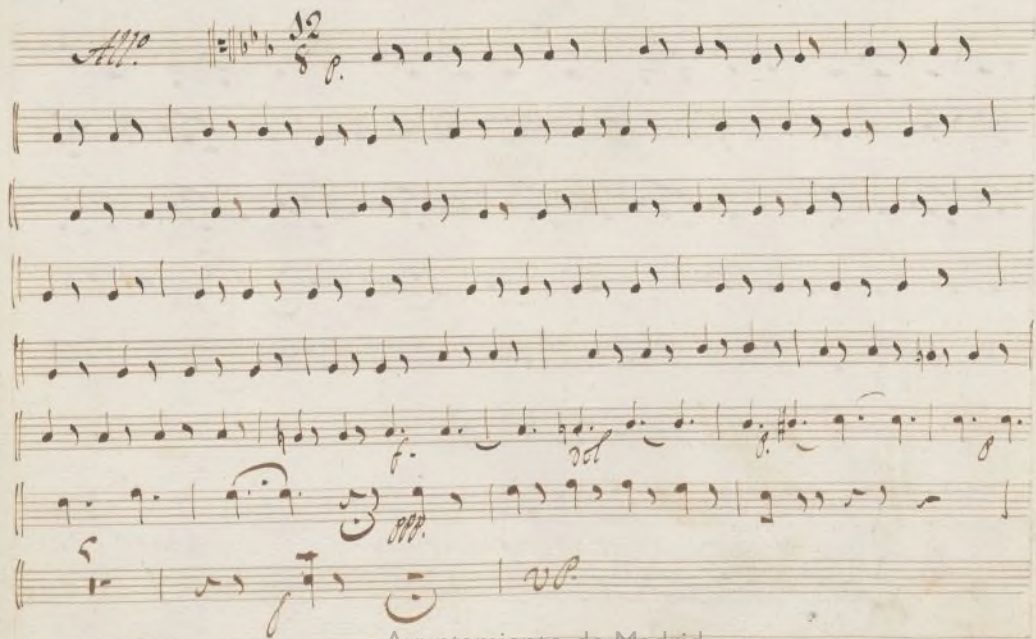 All.º 12
8 p.
f. dol p. p
ppp.
f V P.
Ayuntamiento de Madrid